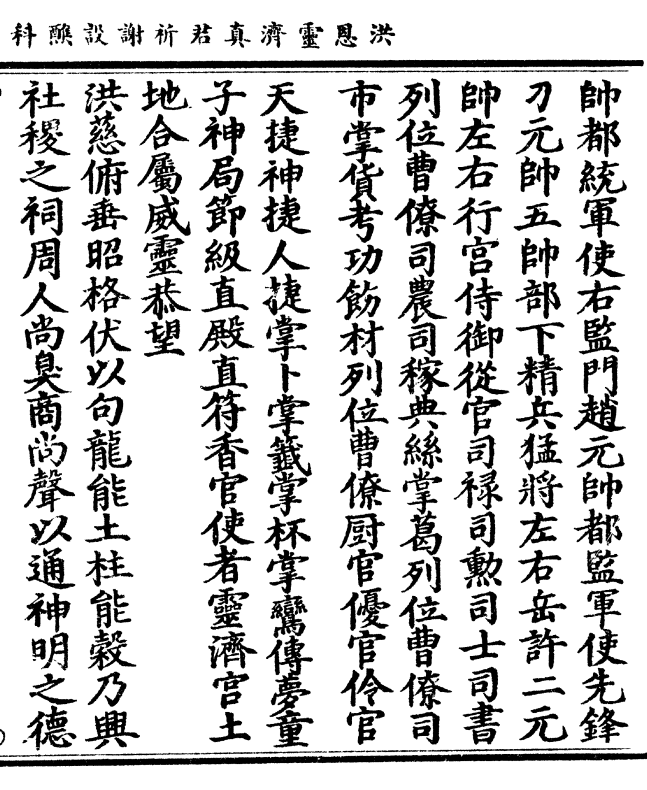 洪恩靈濟真君祈謝設醮科
帥都統軍使右監門趙元帥都監軍使先鋒
刀元帥五帥部下精兵猛將左右岳許二元
帥左右行宮侍御從官司祿司勲司士司書
列位曹僚司農司稼典絲掌葛列位曹僚司
市掌貨考功飭材列位曹僚厨官優官伶官
天捷神捷人捷掌卜掌籤掌杯掌鸞傳夢童
子神局節級直殿直符香官使者靈濟宮土
地合屬威靈恭望
洪慈俯垂昭格伏以句龍能土柱能穀乃興
社稷之祠周人尚臭商尚聲以通神明之德